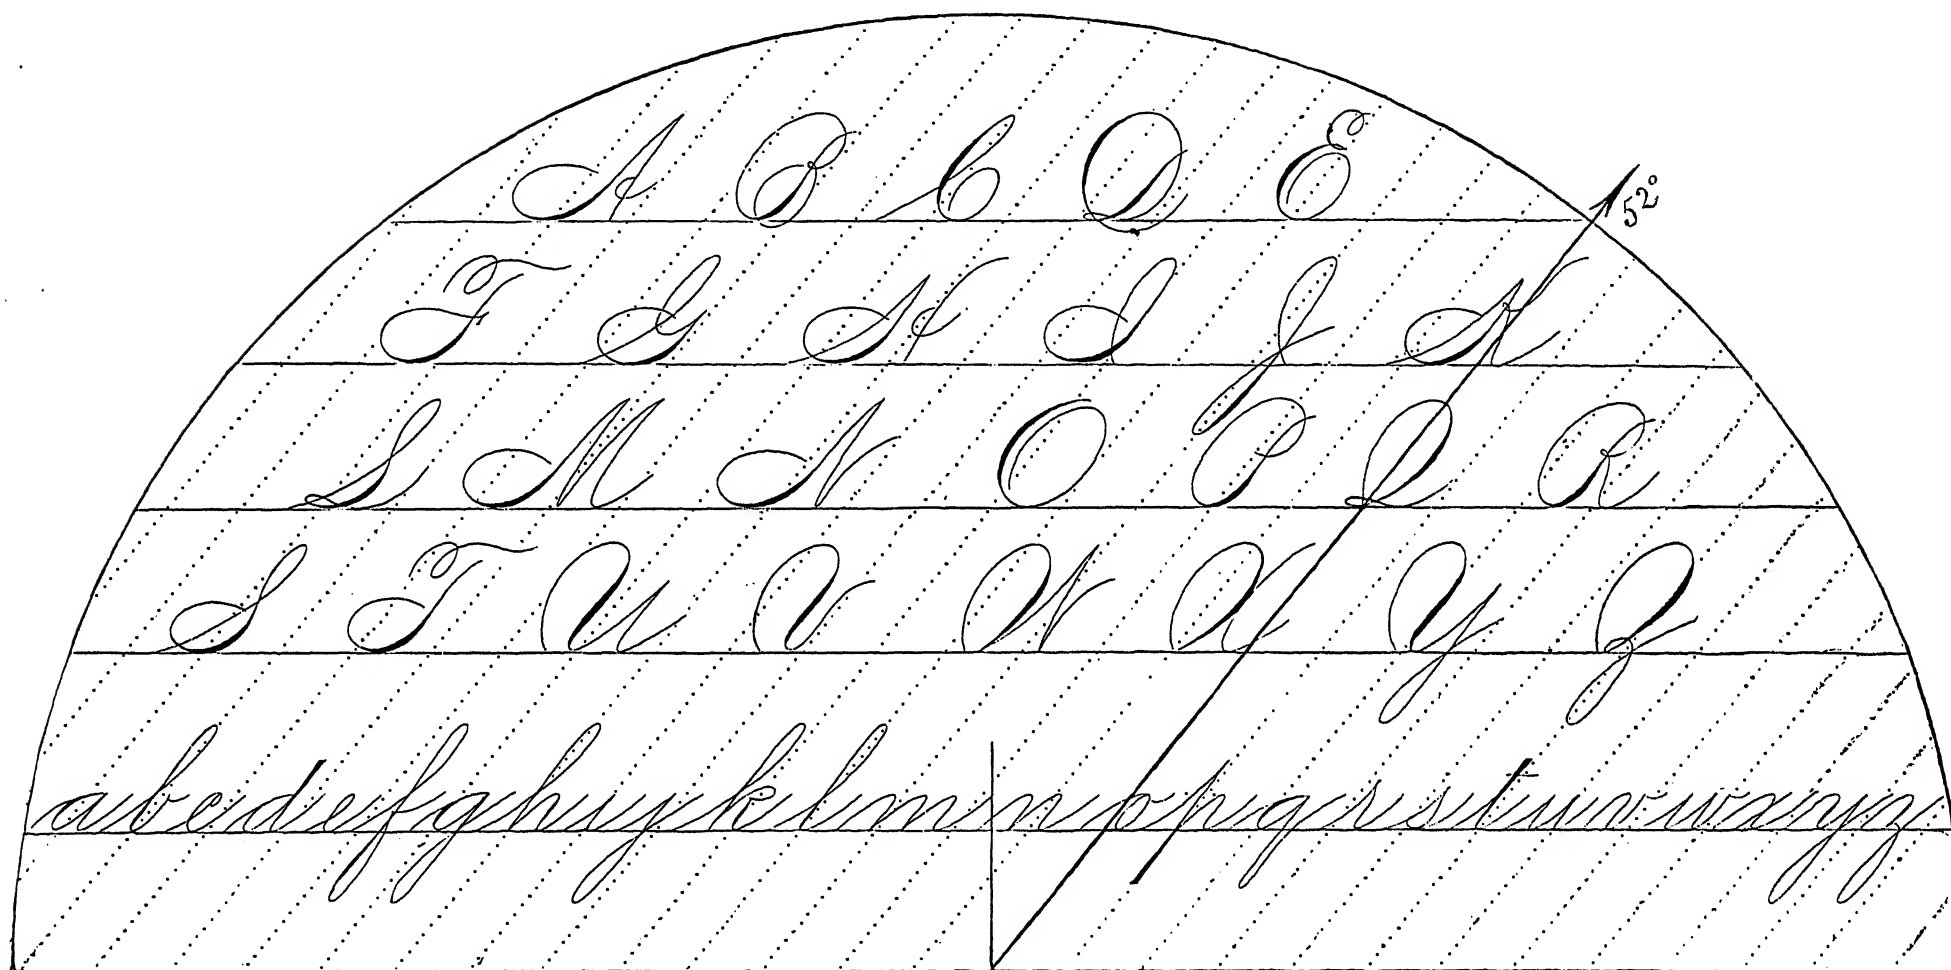 A B C D E
52°
F G H I J K
L M N O P Q R
S T U V W X Y Z
a b c d e f g h i j k l m n o p q r s t u v w x y z